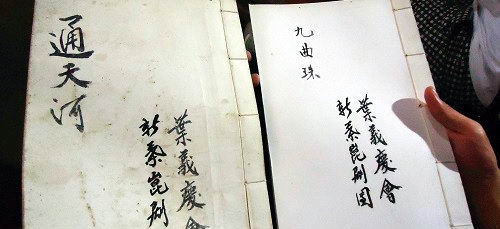 通天河
葉義慶會
新秦崑劇
九曲珠
葉義慶會
新秦崑劇团